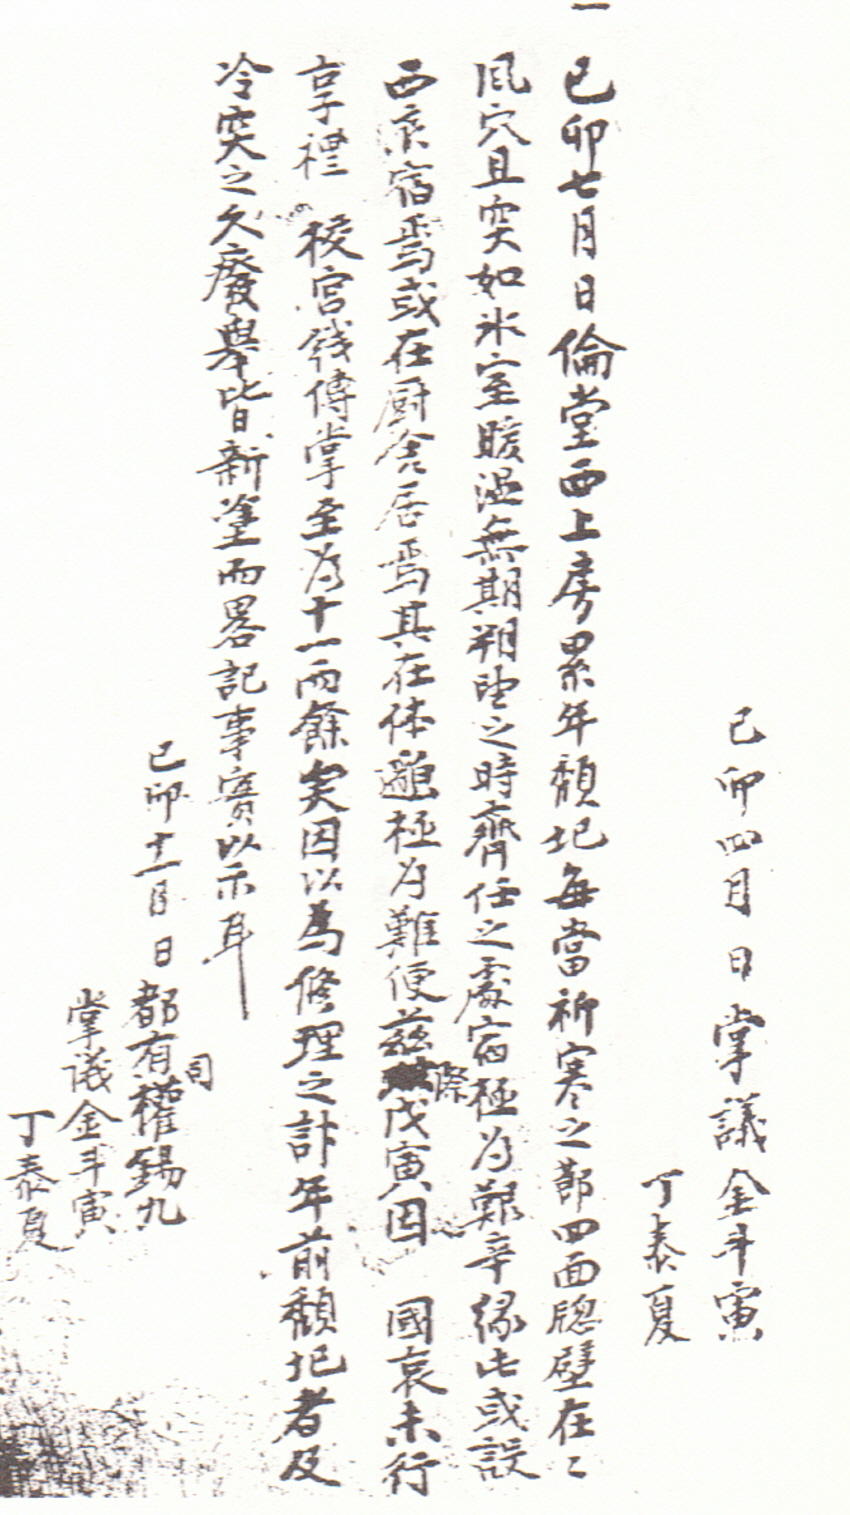 己卯四月 日掌議金斗寅
丁泰夏
一 己卯七月日倫堂西上房累年頹圮每當祈寒之節四面牕壁在〻
風穴且突如氷室暖温無期朔望之時齋任之處宿極为艱辛緣此或設
西夜宿焉或在厨舍居焉其在体貌極为難便茲際戊寅因 國哀未行
享禮 校宮錢傳掌至为十一両餘矣因以為修理之計年前頹圮者及
冷突之久廢舉皆新塗而畧記事實以示耳
己卯十一月 日都有司權錫九
掌議金斗寅
丁泰夏